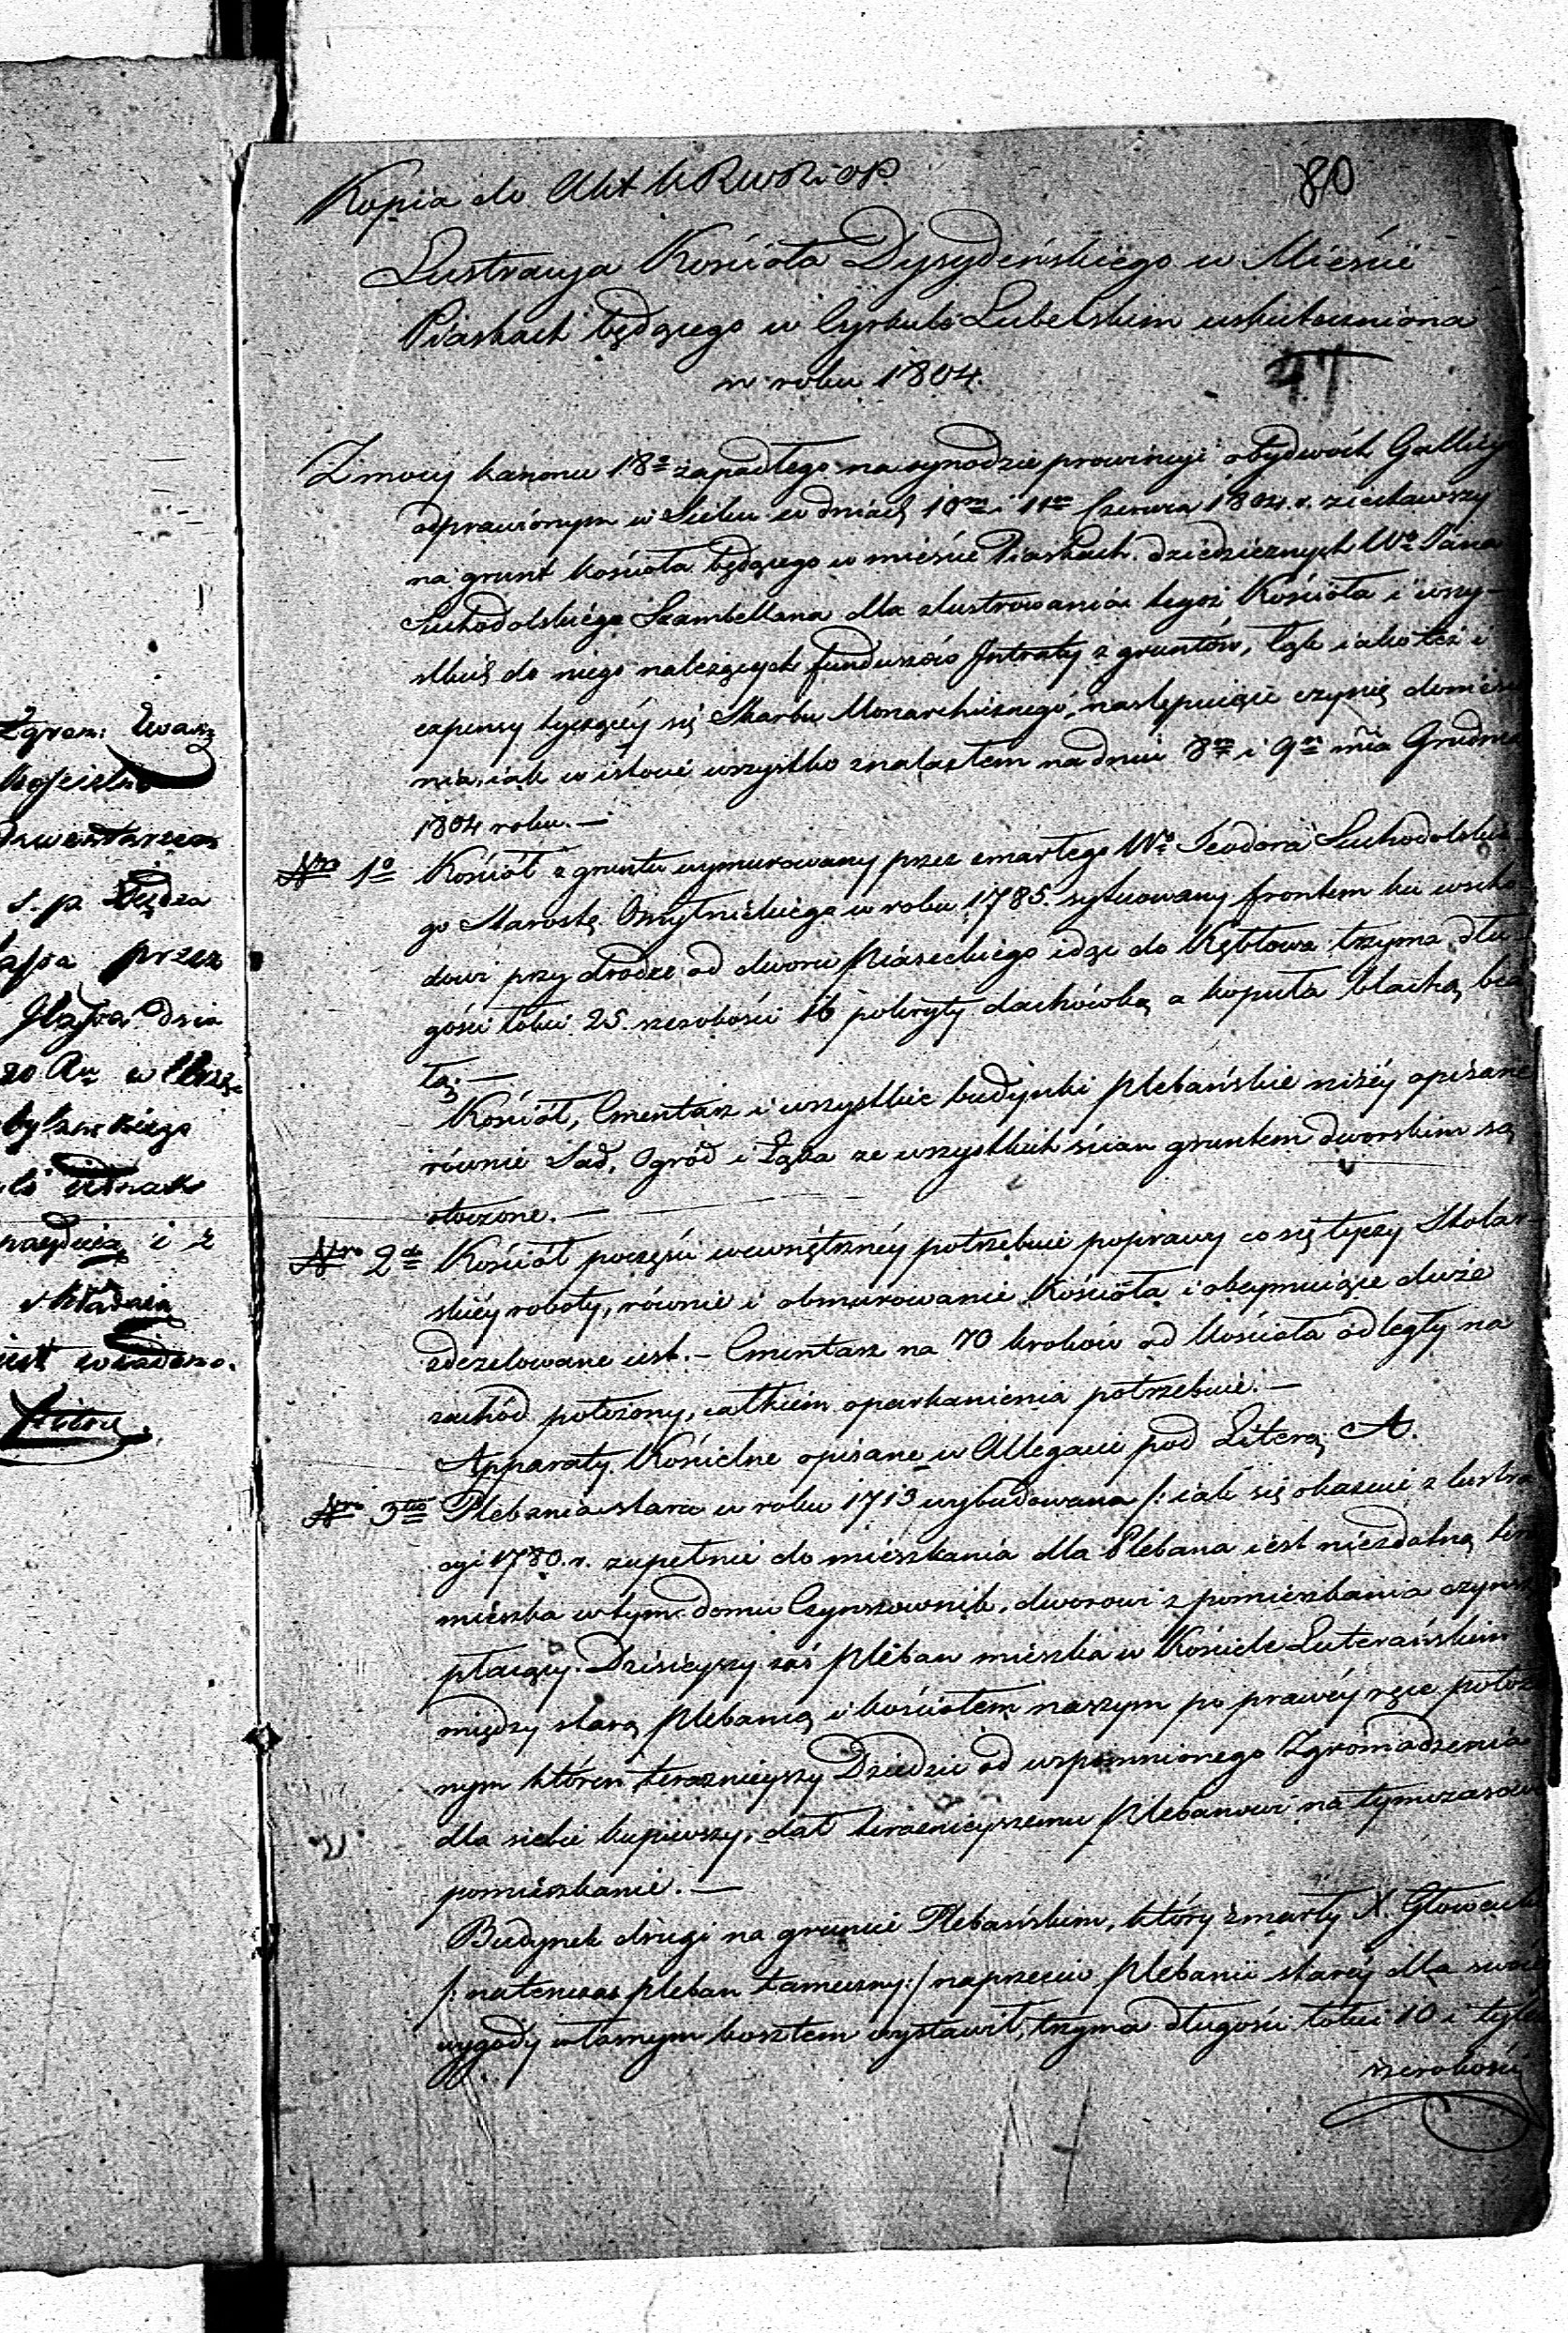 Zgrom: Ewan
Kościeln
Inwentarzem
s. p. Xiędza
przez
dnia
20
i
Kopia do Akt
80
Lustracya Kościoła Dyssydeńskiego w Mieście
Piaskach będącego w Cyrkule Lubelskim uskuteczniona
w roku 1804.
47
Z mocy kanonu 18º zapadłego na synodzie prowincyi obydwóch Gallicy
odprawionym w Sielcu w dniach 10m i 11m Czerwca 1804. r. ziechawszy
na grunt kościoła będącego w mieście Piaskach dziedzicznych Wo Pana
Suchodolskiego Szambellana dla zlustrowania tegoż Kościoła i wszy-
stkich do niego należących funduszów Intraty z gruntów, łąk iako też i
expensy tyczącéy się Skarbu Monarchicznego, następuiące czynię doniesie
nia, iak w istocie wszystko znalazłem na dniu 8m i 9m mca Grudnia
1804 roku. —
Nro 1º Kościół z gruntu wymurowany przez zmarłego Wo Teodora Suchodolskie
go Starostę w roku 1785. sytuowany frontem ku wscho
dowi przy drodze od dworu Piaseckiego idąc do Kębłowa trzyma dłu-
gości łokci 25. szerokości 16 pokryty dachówką a kopuła blachą bia
łą. —
Kościół, Cmentarz i wszystkie budynki plebańskie niżéy opisane
równie Sad, Ogród i Łąka ze wszystkich ścian gruntem dworskim są
otoczone. —
Nro 2do Kościół po części wewnętrznéy potrzebuie poprawy co się tyczy Stolar-
skiéy roboty, równie i obmurowanie Kościoła i obeymuiące duże
zdezelowane iest. — Cmentarz na 70 kroków od kościoła odległy na
zachód położony, całkiem oparkanienia potrzebuie. —
Apparaty Kościelne opisane w Allegacie pod Literą A.
Nro 3tio Plebania stara w roku 1713 wybudowana /: iak się okazuie z lustra
cyi 1780. r. zupełnie do mieszkania dla Plebana iest niezdatną
mieszka w tym domu Czynszownik, dworowi z pomieszkania czynsz
płacący. Dzisieyszy zaś pleban mieszka w Kościele Luterańskim
między starą plebanią i kościołem naszym po prawéy ręce położo
nym któren teraznieyszy Dziedzic od wspomnionego Zgromadzenia
dla siebie kupiwszy, dał teraznieyszemu plebanowi na tymczasowe
pomieszkanie. —
Budynek drugi na gruncie Plebańskim, który zmarły X. Głowacki
/: natenczas pleban tameczny :/ naprzeciw plebanii staréy dla swoiéy
wygody własnym kosztem wystawił, trzyma długości łokci 10 i tyle
szerokości